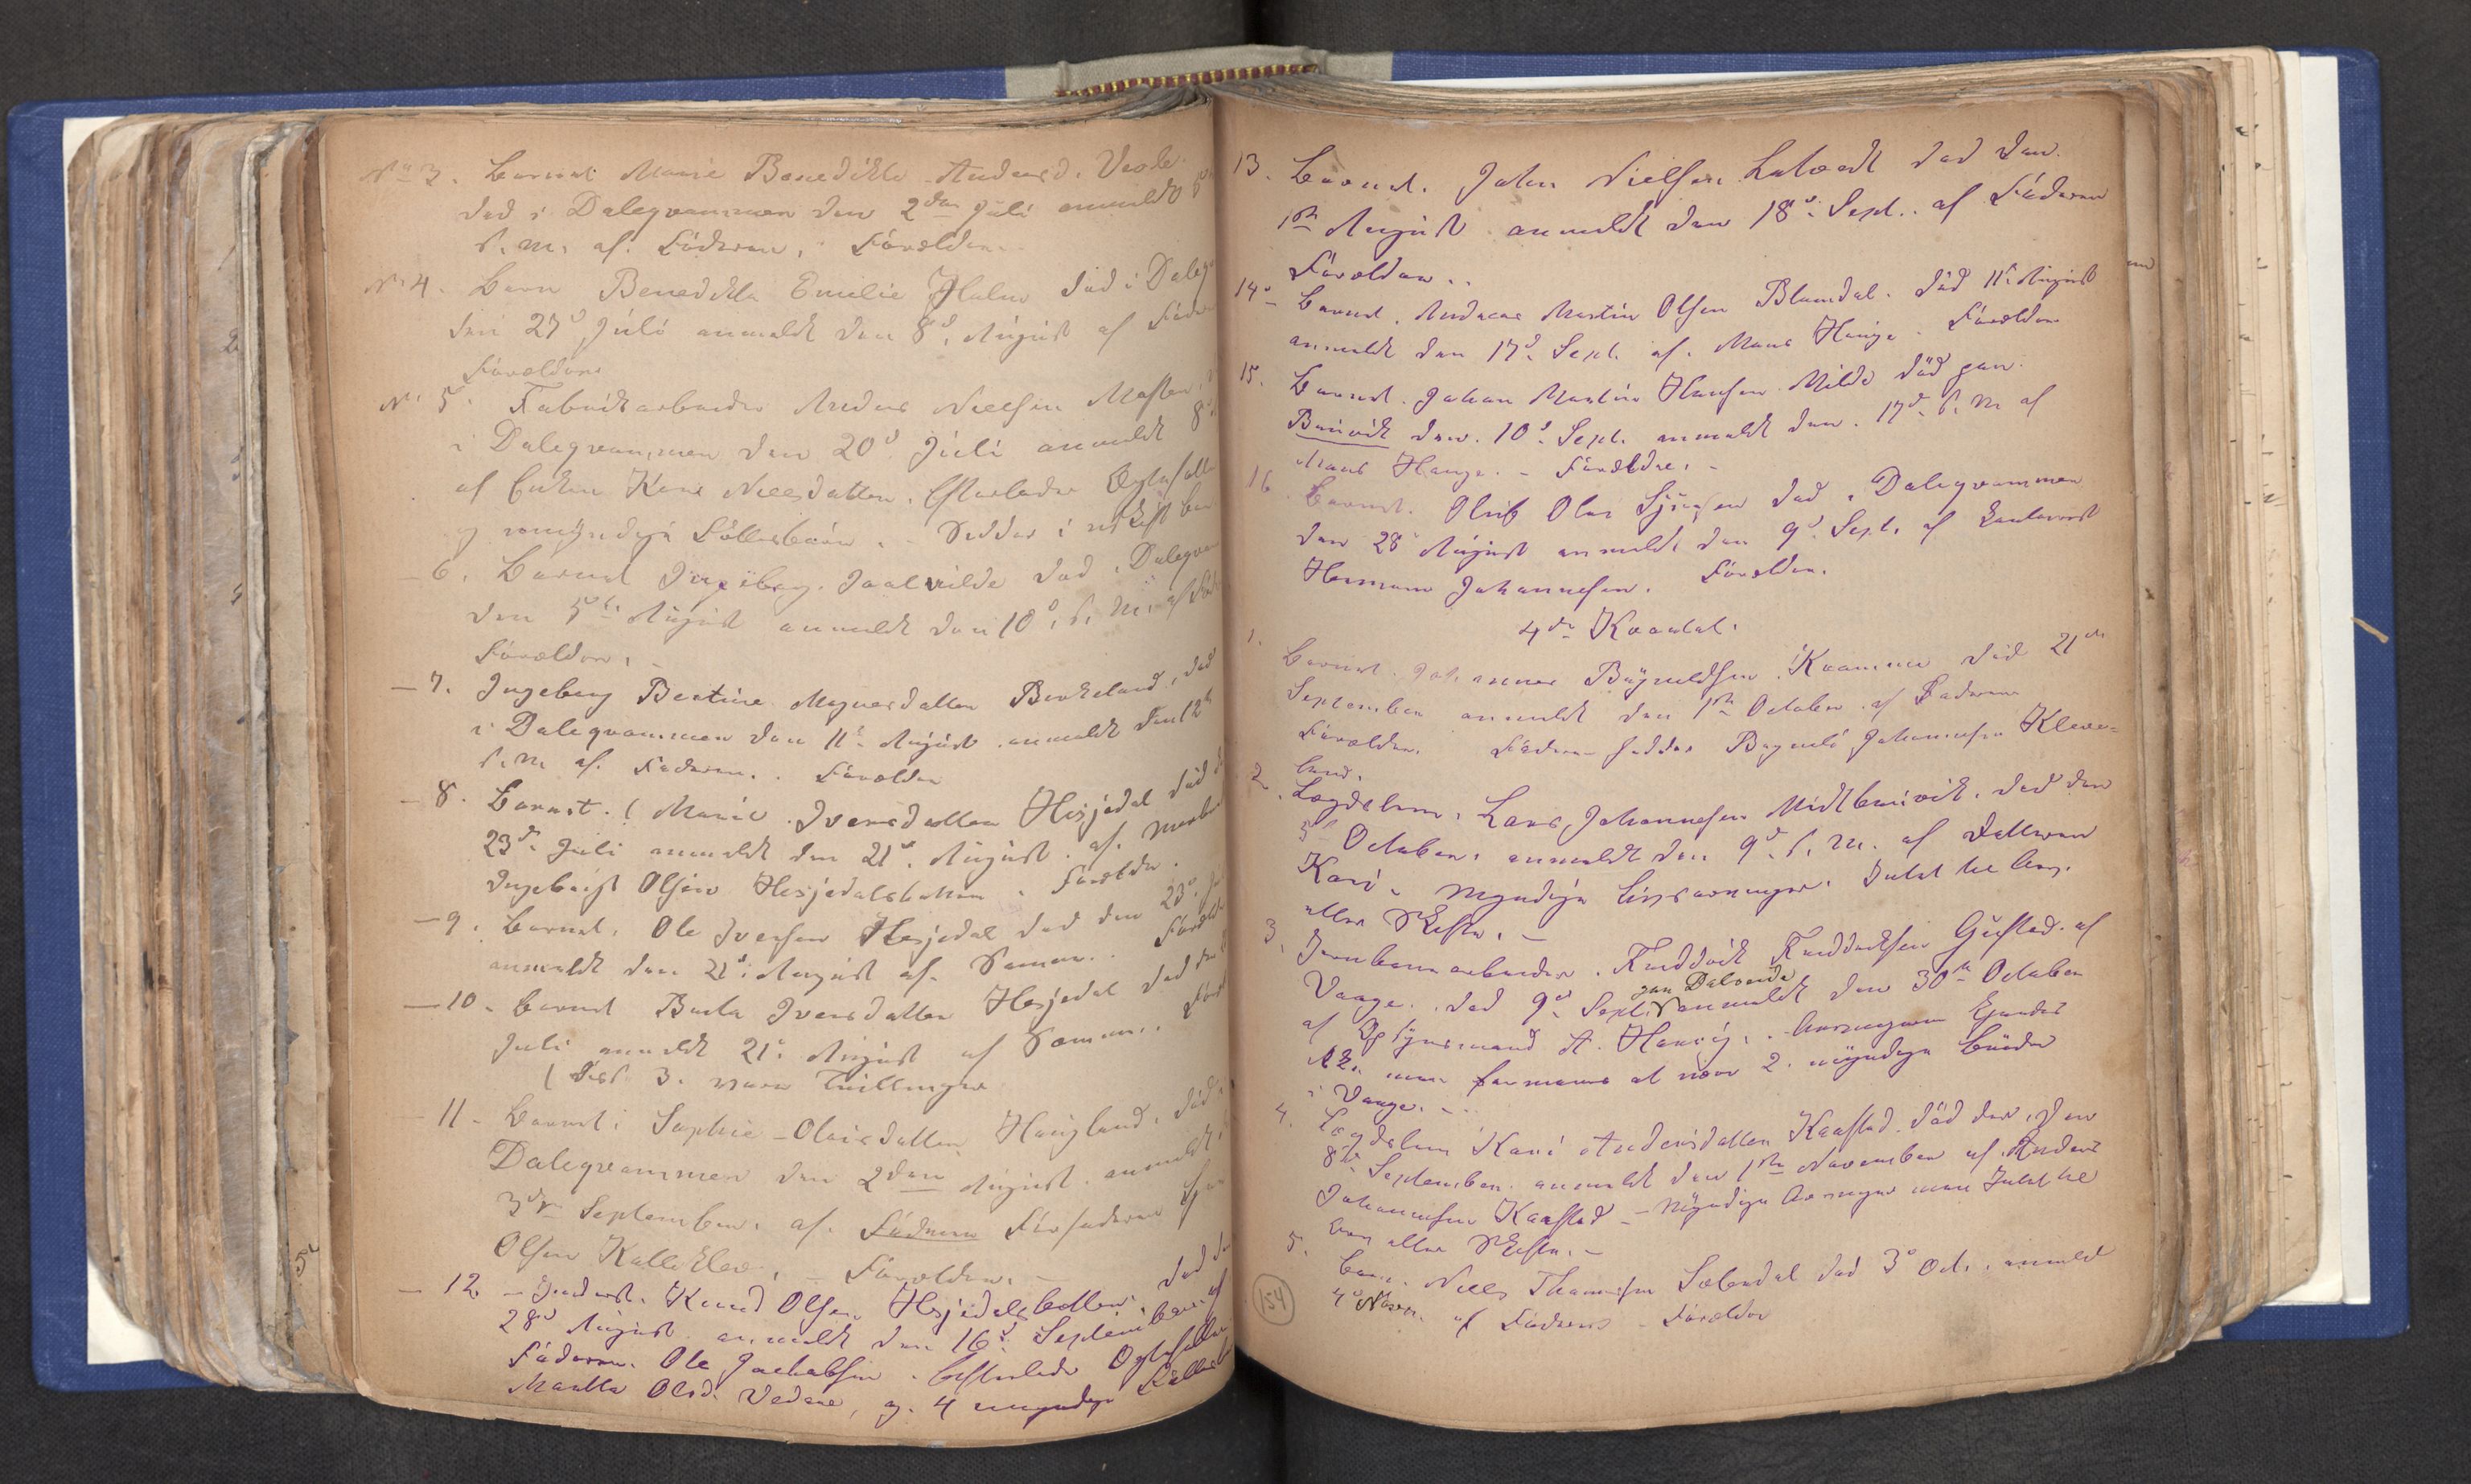 No 3. Barnet Marie Benedikte Andersd. Vesle
död i Dalegvammen den 2den Juli anmeldt 5
s. m. af Föderen, Forældre
No 4. Barn Benedikta Emelie Holm död i Daleg
den 27d Juli anmeldt den 8d August af Föder
Forældre
No 5. Fabrikarbeider Anders Nielsen
i Dalegvammen den 20d Juli anmeldt 8
af Enken Kari Nielsdatter. Efterlader Ægtefælle
og umyndige Fællesbörn. Sidder i uskiftet bo
6. Barnet Ingeborg död i Dalegvam
den 5te August anmeldt den 10d s. M. af Fad
Forældre.
- 7. Ingeborg Bertine Magnesdatter Birkeland, död
i Dalegvammen den 11te August anmeldt den 12te
s. m. af Faderen. Forældre
- 8. Barnet. ( Marie Iversdatter Hesjedal död d
23de Juli anmeldt den 21d August af
Ingebrigt Olsen Hesjedalsbotten. Forældre.
- 9. Barnet. Ole Iversen Hesjedal död den 23d Ju
anmeldt den 21d August af Samme. Foræld
- 10. Barnet Berta Iversdatter Hesjedal död den
Juli anmeldt 21d August af Samme. Foræl
( Disse 3. vare Trillinger
- 11. Barnet Sophie Olaisdatter Haugland. död i
Dalegvammen den 2den August. anmeldt
3de September. af Faderen
Olsen Kalleklev. - Forældre.
- 12 - Inderst. Knud Olsen Hesjedalsbotten. död d
28d August anmeldt den 16d September af
Faderen. Ole Jachobsen. Efterlader Ægtefælle
Martha Olsd. Vedaae, og 4 umyndige Fællesb
13. Barnet. John Nielsen död den
1ste August anmeldt den 18d Sept. af Faderen
Forældre..
14. Barnet. Andreas Martin Olsen Blomdal. död 11te August
anmeldt den 17d Sept. af Mons Hauge. Forældre
15. Barnet. Johan Martin Hansen Milde död paa
Bruvik den 10d Sept. anmeldt den 17d s. M af
Mons Hauge. - Forældre. -
16. Barnet. Oluf Olai död i Dalegvammen
den 28 August anmeldt den 9d Sept. af
Hermann Johannesen. Forældre.
4de Kvartal.
1. Barnet. Johannes Böynildsen Kvamme död 21de
September anmeldt den 1ste October af Faderen
Forældre. Faderen hedder Böynild Johannesen Kleve-
land.
2. Lægdslem. Lars Johannesen Midtbruvik. död den
5te October. anmeldt den 9d s. M. af Datteren
Kari. Myndige Livsarvinger. Intet til Arv
eller Skifte. -
3. Jernbanearbeider. Fredrik Fredriksen Gufstad af
paa Dalseide
Vaage. död 9d Sept. anmeldt den 30te October
af Opsynsmand A. Arvingerne kjendes
ikke men formenes at være 2. myndige brödre
i Vaage. -
4. Lægdslem Kari Andersdatter Kaastad. död der, den
8de September. anmeldt den 1ste November af Anders
Johannesen Kaastad - Myndige Arvinger men Intet til
Arv eller Skifte. -
5. Barn. Niels Thomesen död 3d Oct. anmeldt
4d Novem. af Faderen - Forældre
154